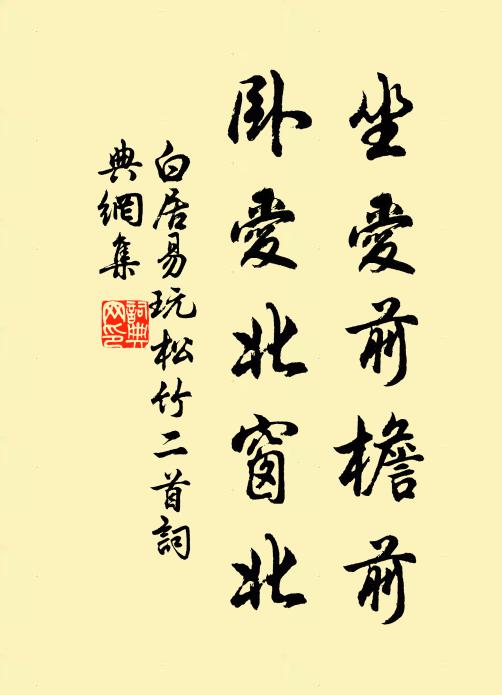 坐愛前檐前
卧愛北窗北
白居易玩松竹二首詞
典網集
詞典
网印